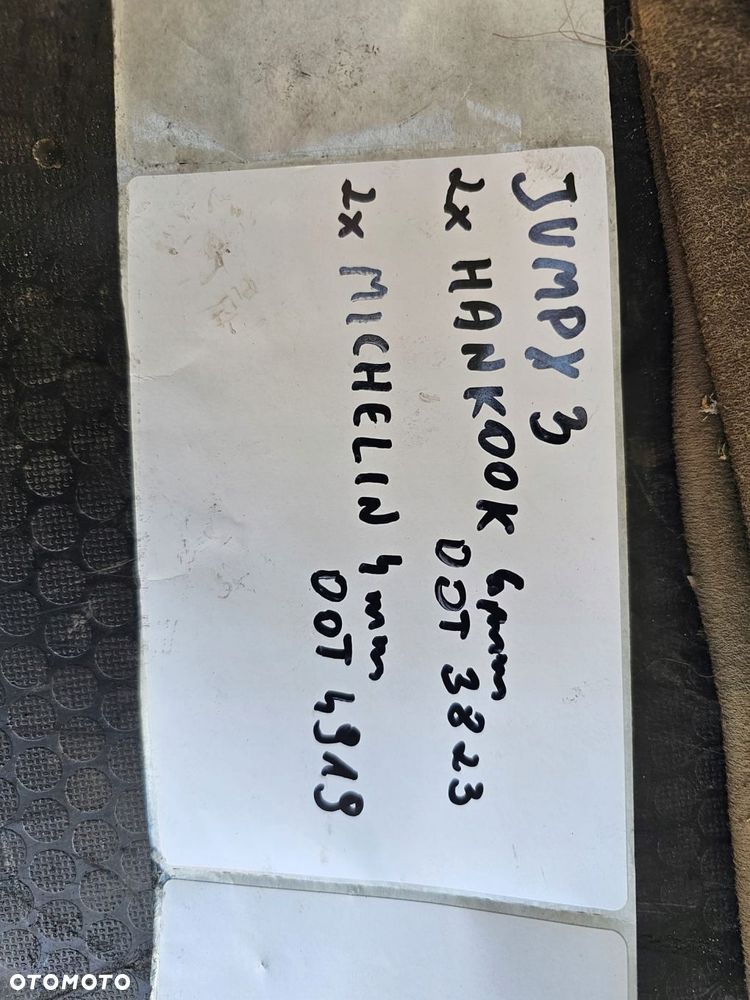 JUMPY 3
2x HANKOOK 6mm
DOT 3823
2x MICHELIN 4mm
DOT 4919
OTOMOTO